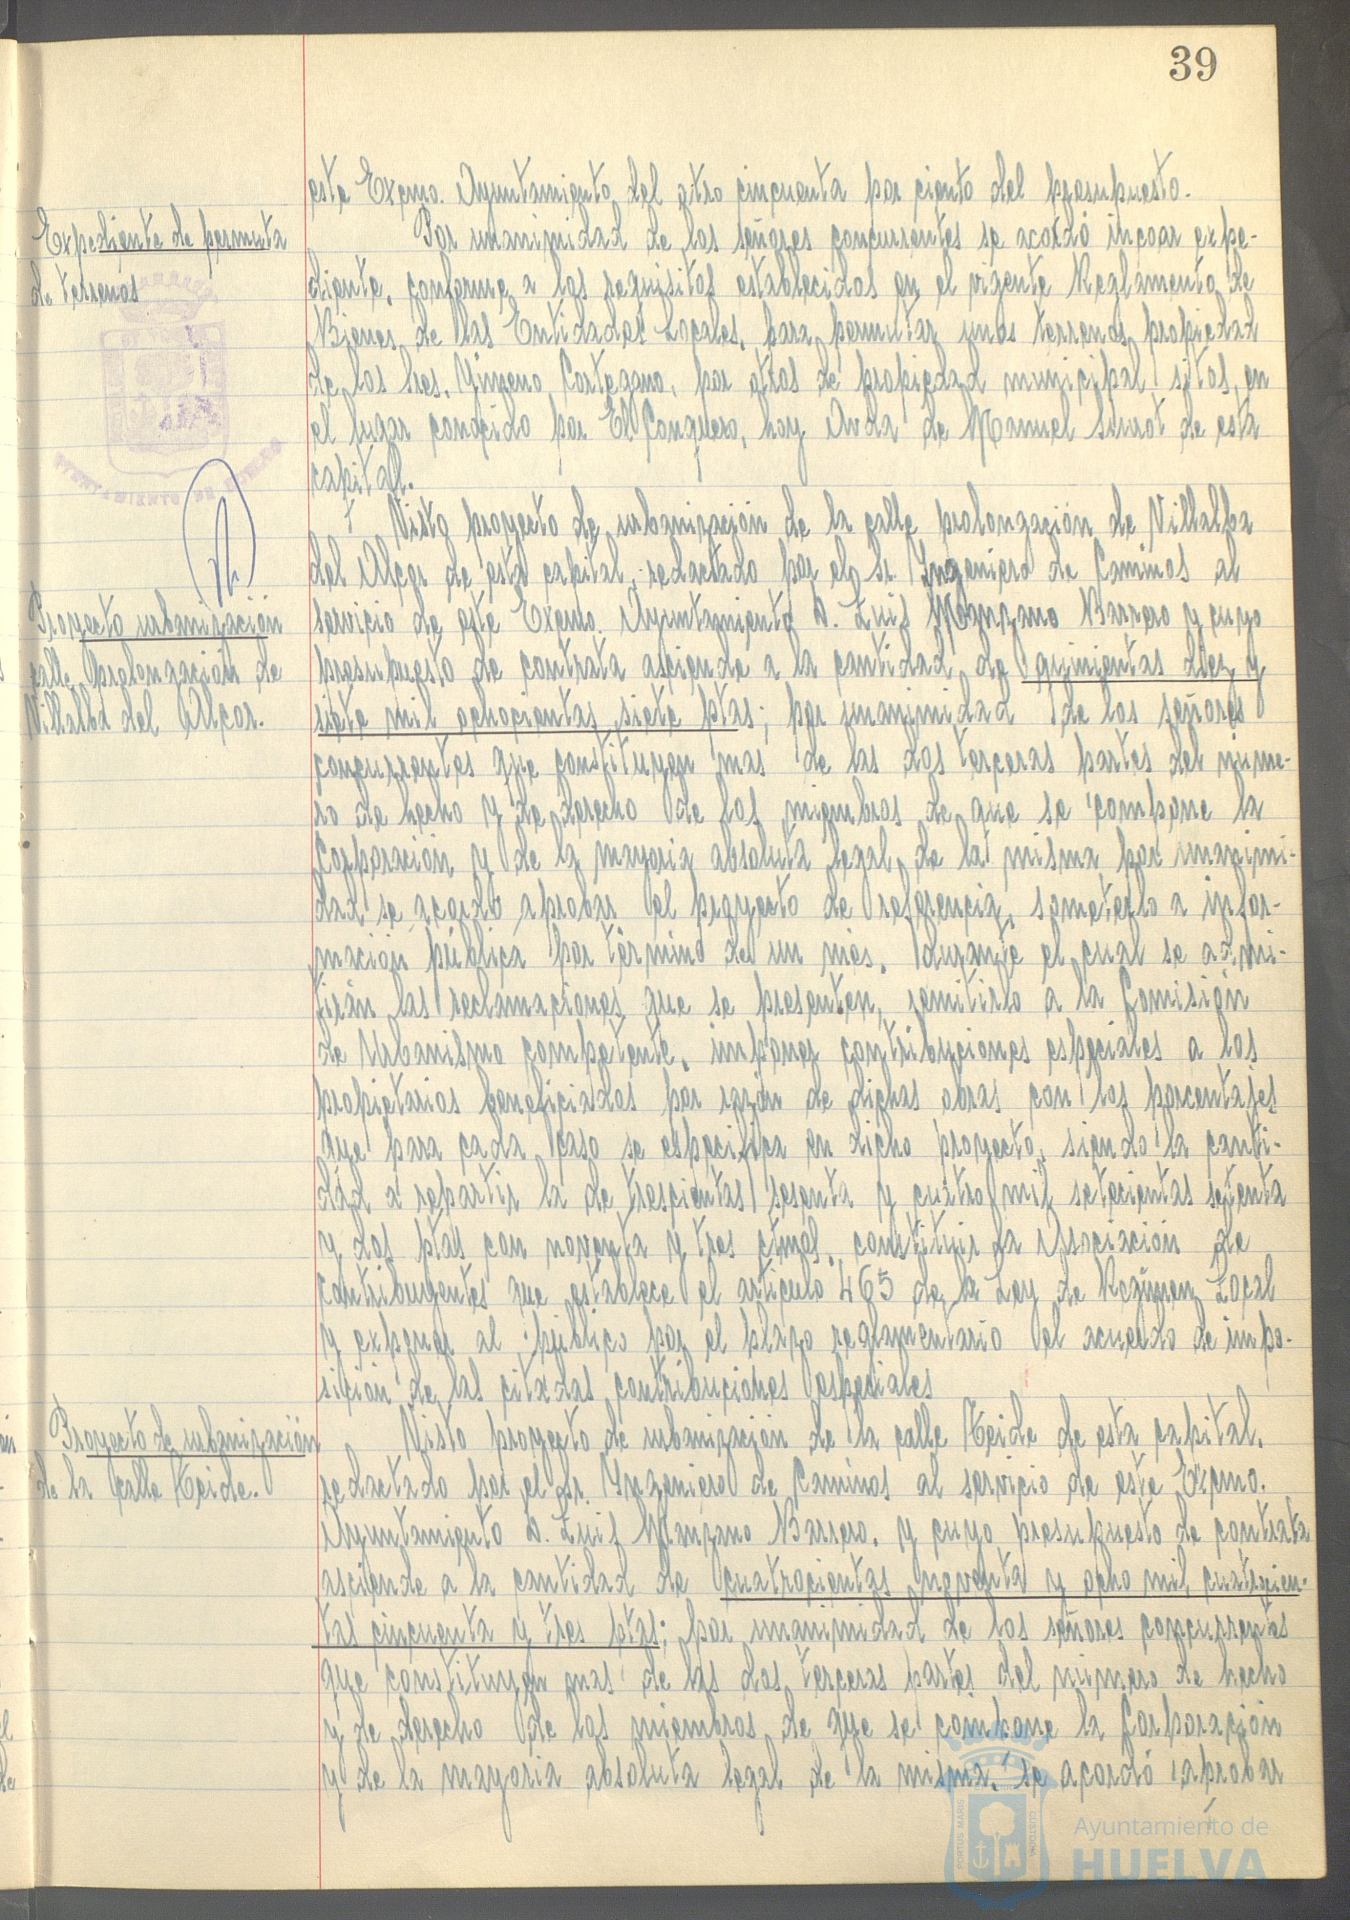 39
este Excmo. Ayuntamiento del otro cincuenta por ciento del presupuesto.
Expediente de permuta
de terrenos
Por unanimidad de los señores concurrentes se acordó incoar expe-
diente, conforme a los requisitos establecidos en el vigente Reglamento de
Bienes de las Entidades Locales, para permutar unos terrenos propiedad
de los Sres. Jimeno Cortegano, por otros de propiedad municipal sitos en
el lugar conocido por El Conquero, hoy Avda de Manuel Siurot de esta
capital.
Proyecto urbanización
calle Prolongación de
Villalba del Alcor.
Visto proyecto de urbanización de la calle prolongación de Villalba
del Alcor de esta capital, redactado por el Sr. Ingeniero de Caminos al
servicio de este Excmo. Ayuntamiento D. Luis Manzano Barrero y cuyo
presupuesto de contrata asciende a la cantidad de quinientas diez y
siete mil ochocientas siete ptas; por unanimidad de los señores
concurrentes que constituyen mas de las dos terceras partes del núme-
ro de hecho y de derecho de los miembros de que se compone la
Corporación y de la mayoria absoluta legal de la misma por unanimi-
dad se acordó aprobar el proyecto de referencia, someterlo a infor-
mación pública por término de un mes, durante el cual se admi-
tirán las reclamaciones que se presenten, remitirlo a la Comisión
de Urbanismo competente, imponer contribuciones especiales a los
propietarios beneficiados por razón de dichas obras con los porcentajes
que para cada caso se especifica en dicho proyecto, siendo la canti-
dad a repartir la de trescientas sesenta y cuatro mil setecientas setenta
y dos ptas con noventa y tres ctmos, constituir la Asociación de
Contribuyentes que establece el artículo 465 de la Ley de Regimen Local
y exponer al público por el plazo reglamentario el acuerdo de impo-
sición de las citadas contribuciones especiales
Proyecto de urbanización
de la calle Teide.
Visto proyecto de urbanización de la calle Teide de esta capital,
redactado por el Sr. Ingeniero de Caminos al servicio de este Excmo.
Ayuntamiento D. Luis Manzano Barrero, y cuyo presupuesto de contrata
asciende a la cantidad de cuatrocientas noventa y ocho mil cuatrocien-
tas cincuenta y tres ptas; por unanimidad de los señores concurrentes
que constituyen mas de las dos terceras partes del número de hecho
y de derecho de los miembros de que se compone la Corporación
y de la mayoria absoluta legal de la misma, se acordó aprobar
PORTUS MARIS
CUSTODIA
Ayuntamiento de
HUELVA